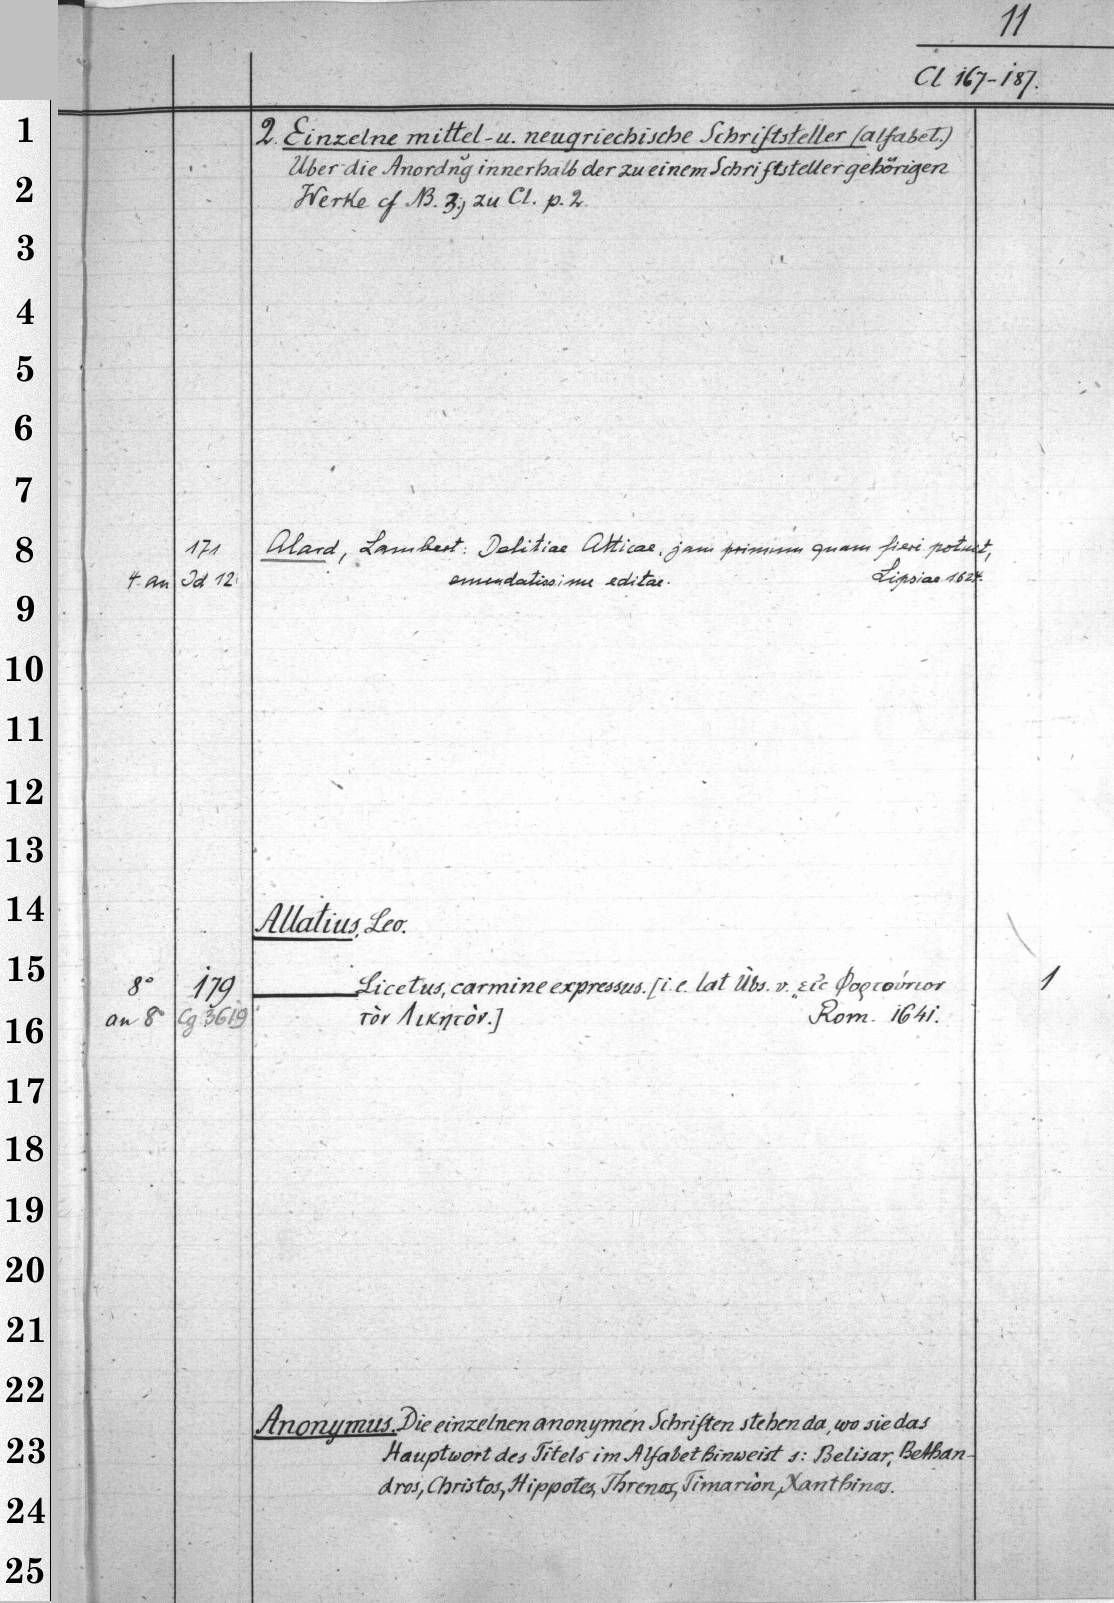 11
Cl 167-187.
1
2. Einzelne mittel- u. neugriechische Schriftsteller (alfabet.)
Über die Anordnŭg innerhalb der zu einem Schriftsteller gehörigen
2
Werke cf NB. 3, zu Cl. p. 2
3
4
5
6
7
8 171 Alard, Lambert: Delitiae Atticae, jam primum quam fieri potuit,
4 an Id 12 emendatissime editae. Lipsiae 1624.
9
10
11
12
13
14
Allatius, Leo.
15
8° 179 Licetus, carmine expressus. [i. e. lat Übs. v. „εἰς Φορτούνιον 1
16 an 8° Cg 3619 τὸν Λικητὸν.] Rom. 1641.
17
18
19
20
21
22
Anonymus. Die einzelnen anonymen Schriften stehen da, wo sie das
23 Hauptwort des Titels im Alfabet hinweist s: Belisar, Belthan-
dros, Christos, Hippotes, Threnos, Timarion, Xanthinos.
24
25